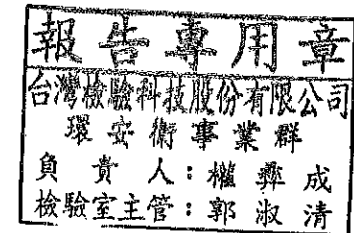 報告專用章
台灣檢驗科技股份有限公司
環安衛事業群
負責人：楊彝成
檢驗室主管：郭淑清